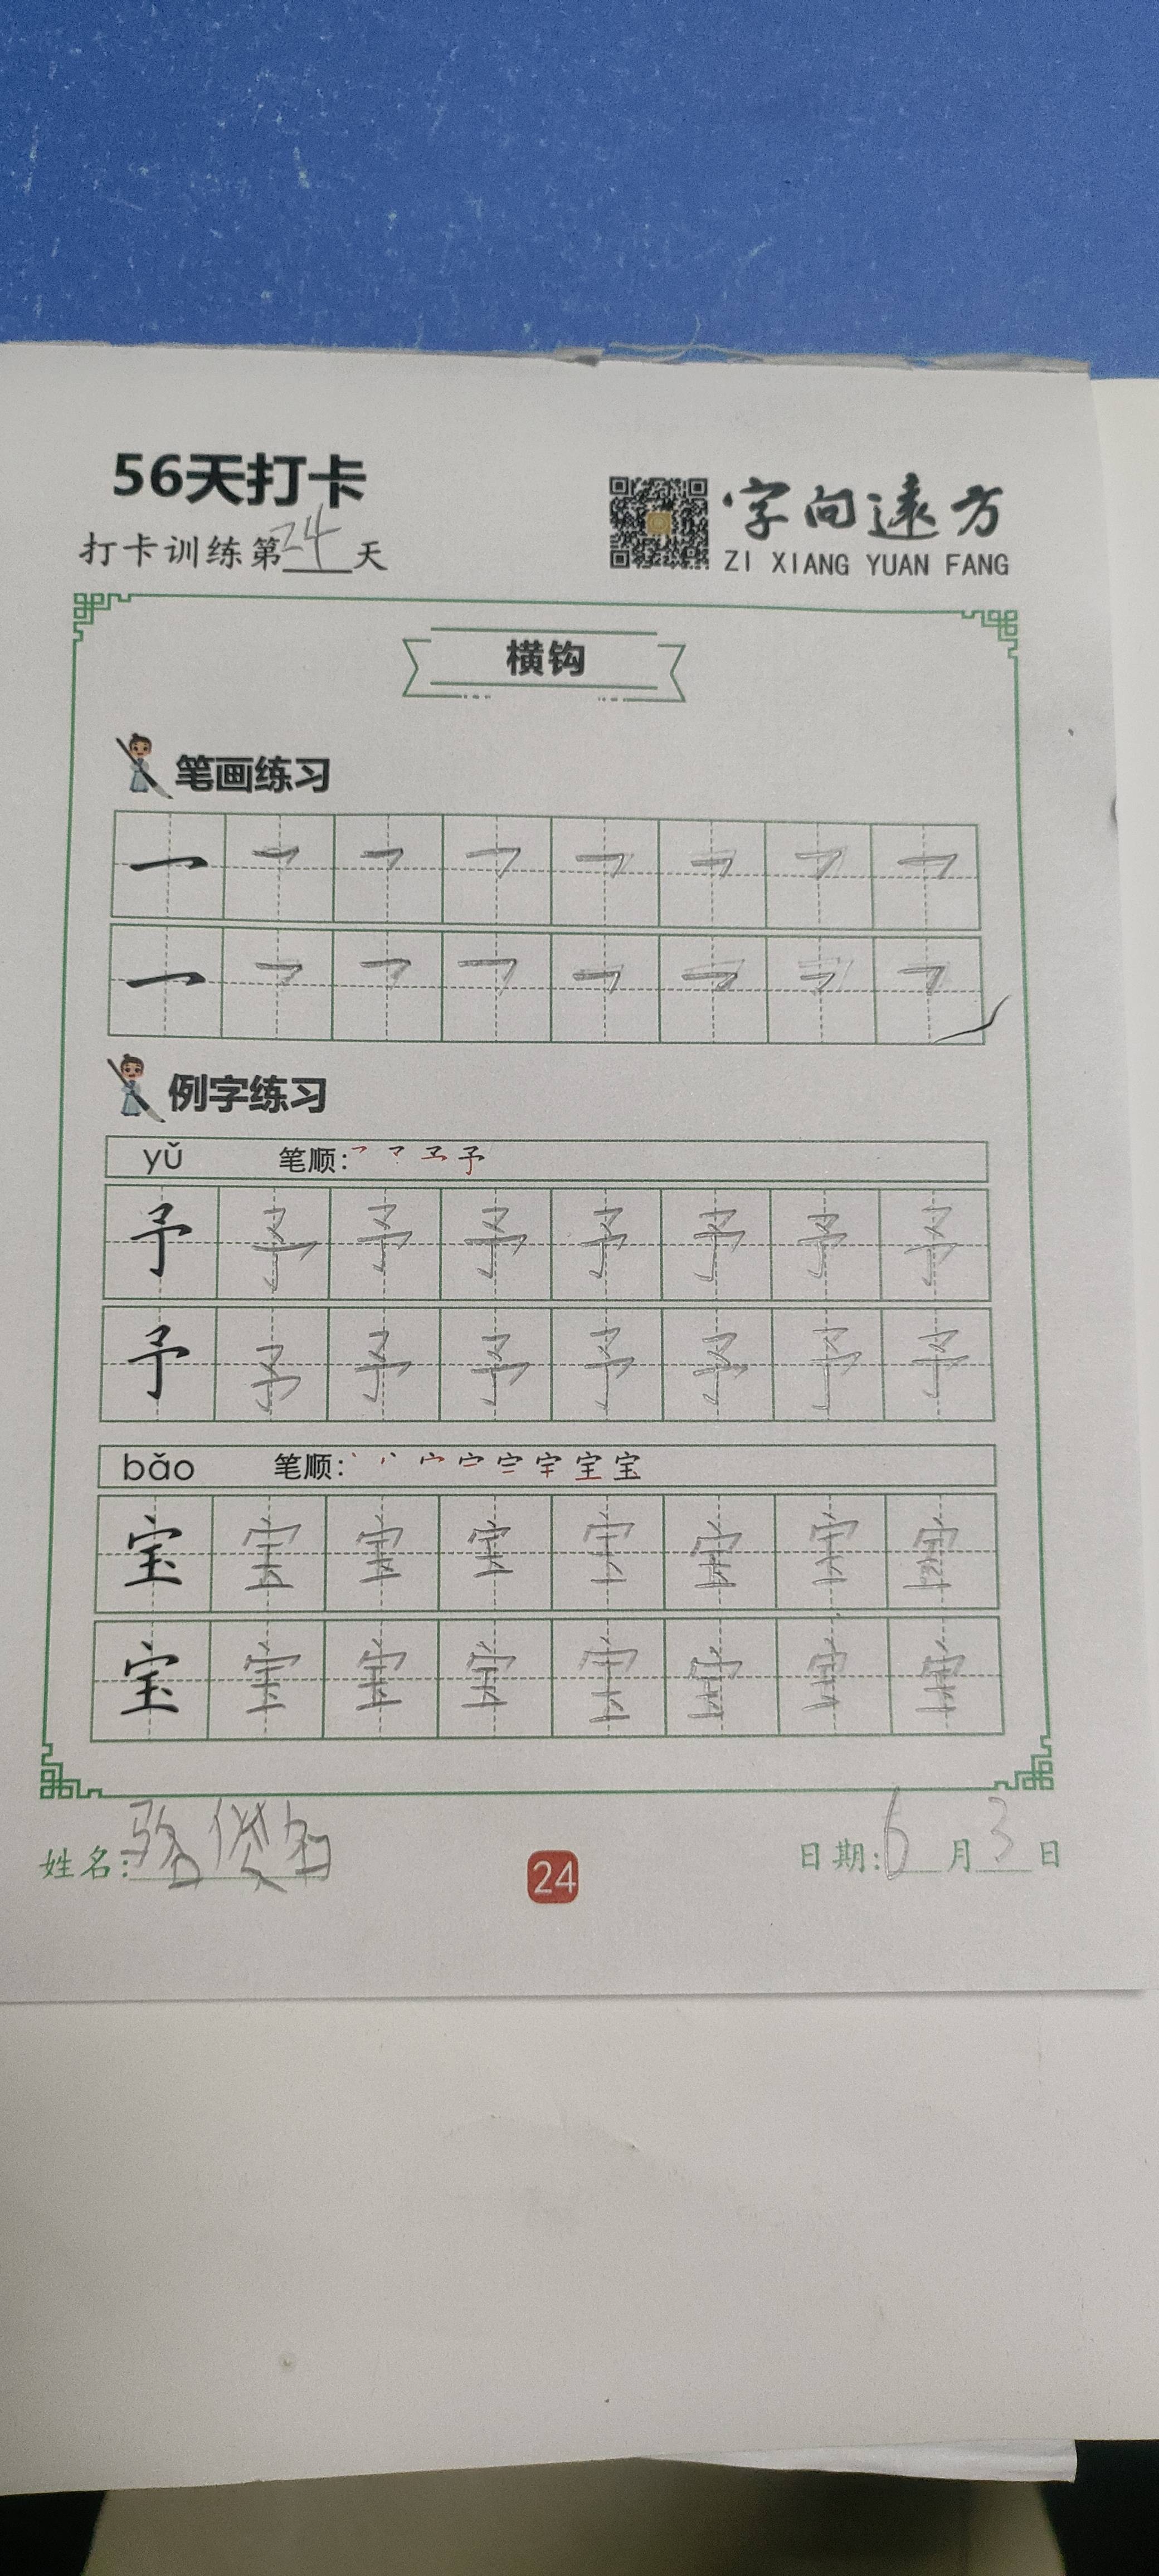 56天打卡
打卡训练第24天
字向远方
ZI XIANG YUAN FANG
横钩
笔画练习
例字练习
yǔ 笔顺:
予 予 予 予 予 予 予 予
予 予 予 予 予 予 予 予
bǎo 笔顺:
宝 宝 宝 宝 宝 宝 宝 宝
宝 宝 宝 宝 宝 宝 宝 宝
姓名:
24
日期:6月3日